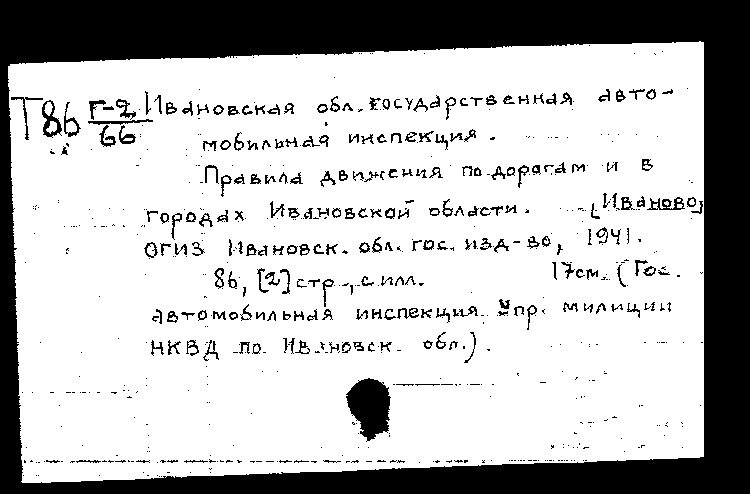 Т86 Г-2/66 Ивановская обл. государственная авто-
мобильная инспекция.
Правила движения по дорогам и в
городах Ивановской области. [Иваново,
ОГИЗ Ивановск. обл. гос. изд-во, 1941.
86, [2] стр., с илл. 17см. (Гос.
автомобильная инспекция Упр. милиции
НКВД по Ивановск. обл.).